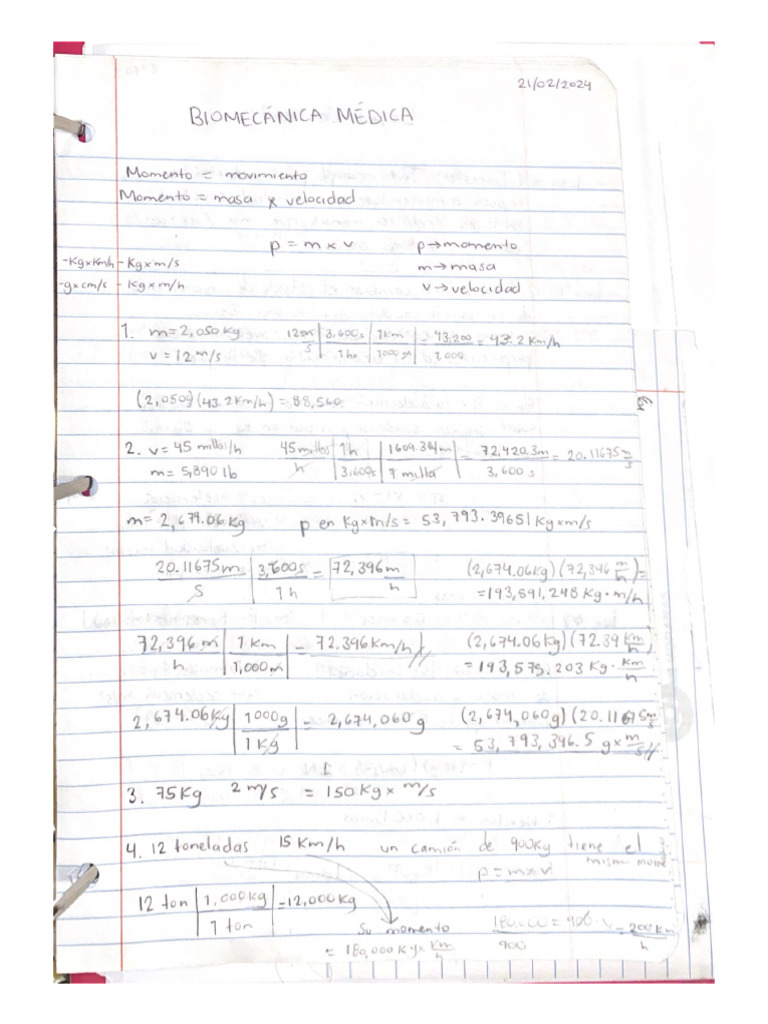 21/02/2024
BIOMECÁNICA MÉDICA
Momento = movimiento
Momento = masa x velocidad
p = m x v p→momento
m→masa
v→velocidad
-Kgxkm/h - Kgxm/s
-gxcm/s - Kgxm/h
1. m=2,050kg 12m/s | 3,600s/1hr | 1km/1000m = 43,200/1,000 = 43.2 Km/h
v=12 m/s
(2,050g)(43.2Km/h)=88,560
2. v=45 millas/h 45millas/h | 1h/3,600s | 1609.34m/1 milla = 72,420.3m/3,600s = 20.11675 m/s
m=5,890 lb
m=2,674.06 Kg p en Kgxm/s = 53,793.39651 Kgxm/s
20.11675m/s | 3,600s/1h = 72,396 m/h (2,674.06Kg)(72,396 m/h)=
=193,591,248 Kg·m/h
72,396 m/h | 1 Km/1,000m = 72.396 Km/h (2,674.06Kg)(72.39 Km/h)
=193,575.203 Kg·Km/h
2,674.06Kg | 1000g/1Kg = 2,674,060 g (2,674,060g)(20.11675m/s)
= 53,793,396.5 gxm/s
3. 75Kg 2 m/s = 150Kgxm/s
4. 12 toneladas 15 Km/h un camión de 900Kg tiene el
mismo mome
p=mxv
12 ton | 1,000Kg/1 ton = 12,000Kg
Su momento
= 180,000 Kgx Km/h
180,000/900 = 900·v = 200 Km/h